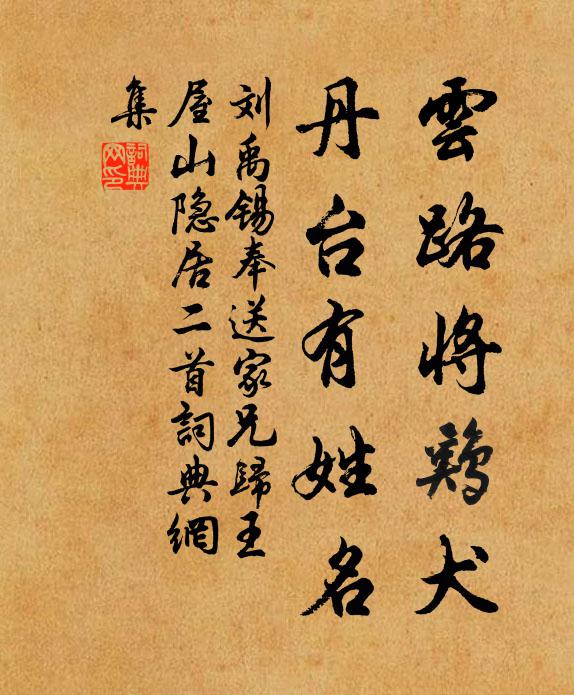 雲路將鷄犬
丹台有姓名
刘禹锡奉送家兄歸王
屋山隐居二首詞典網
集
詞典
网印